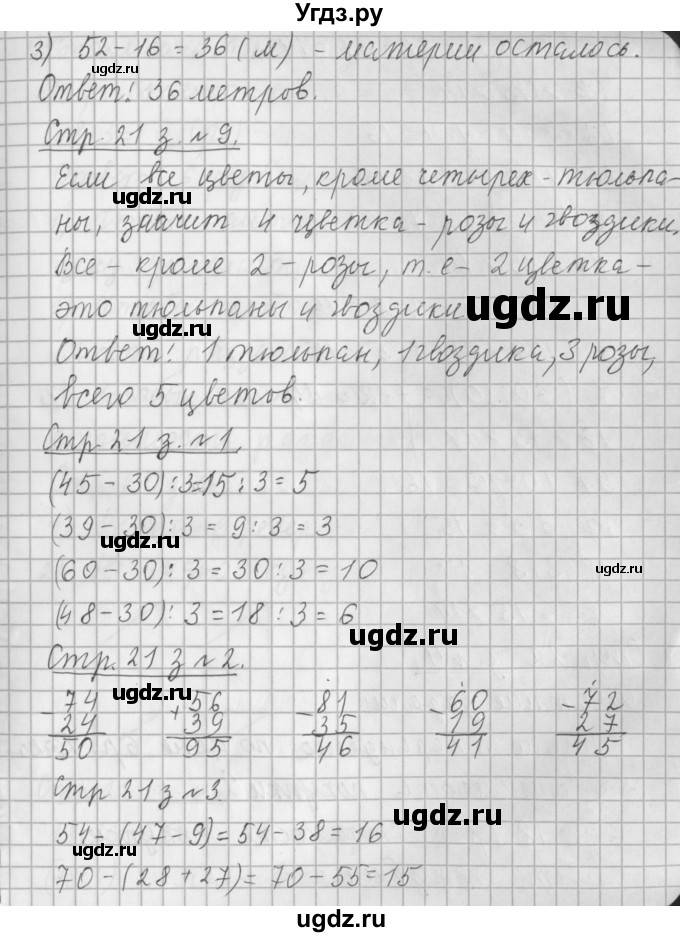 Угдз.ру
3) 52 - 16 = 36 (м) - материи осталось.
Ответ: 36 метров.
Стр. 21 з. № 9.
Если все цветы, кроме четырех - тюльпа-
ны, значит 4 цветка - розы и гвоздики.
Все - кроме 2 - розы, т.е - 2 цветка -
это тюльпаны и гвоздики
Ответ: 1 тюльпан, 1 гвоздика, 3 розы,
всего 5 цветов.
Стр. 21 з. № 1.
(45 - 30) : 3 = 15 : 3 = 5
(39 - 30) : 3 = 9 : 3 = 3
(60 - 30) : 3 = 30 : 3 = 10
(48 - 30) : 3 = 18 : 3 = 6
Стр. 21 з № 2.
- 74 + 56 - 81 - 60 - 72
24 39 35 19 27
50 95 46 41 45
Стр 21 з № 3.
54 - (47 - 9) = 54 - 38 = 16
70 - (28 + 27) = 70 - 55 = 15
ugdz.ru
ugdz.ru
ugdz.ru
ugdz.ru
ugdz.ru
ugdz.ru
ugdz.ru
ugdz.ru
ugdz.ru
ugdz.ru
ugdz.ru
ugdz.ru
ugdz.ru
ugdz.ru